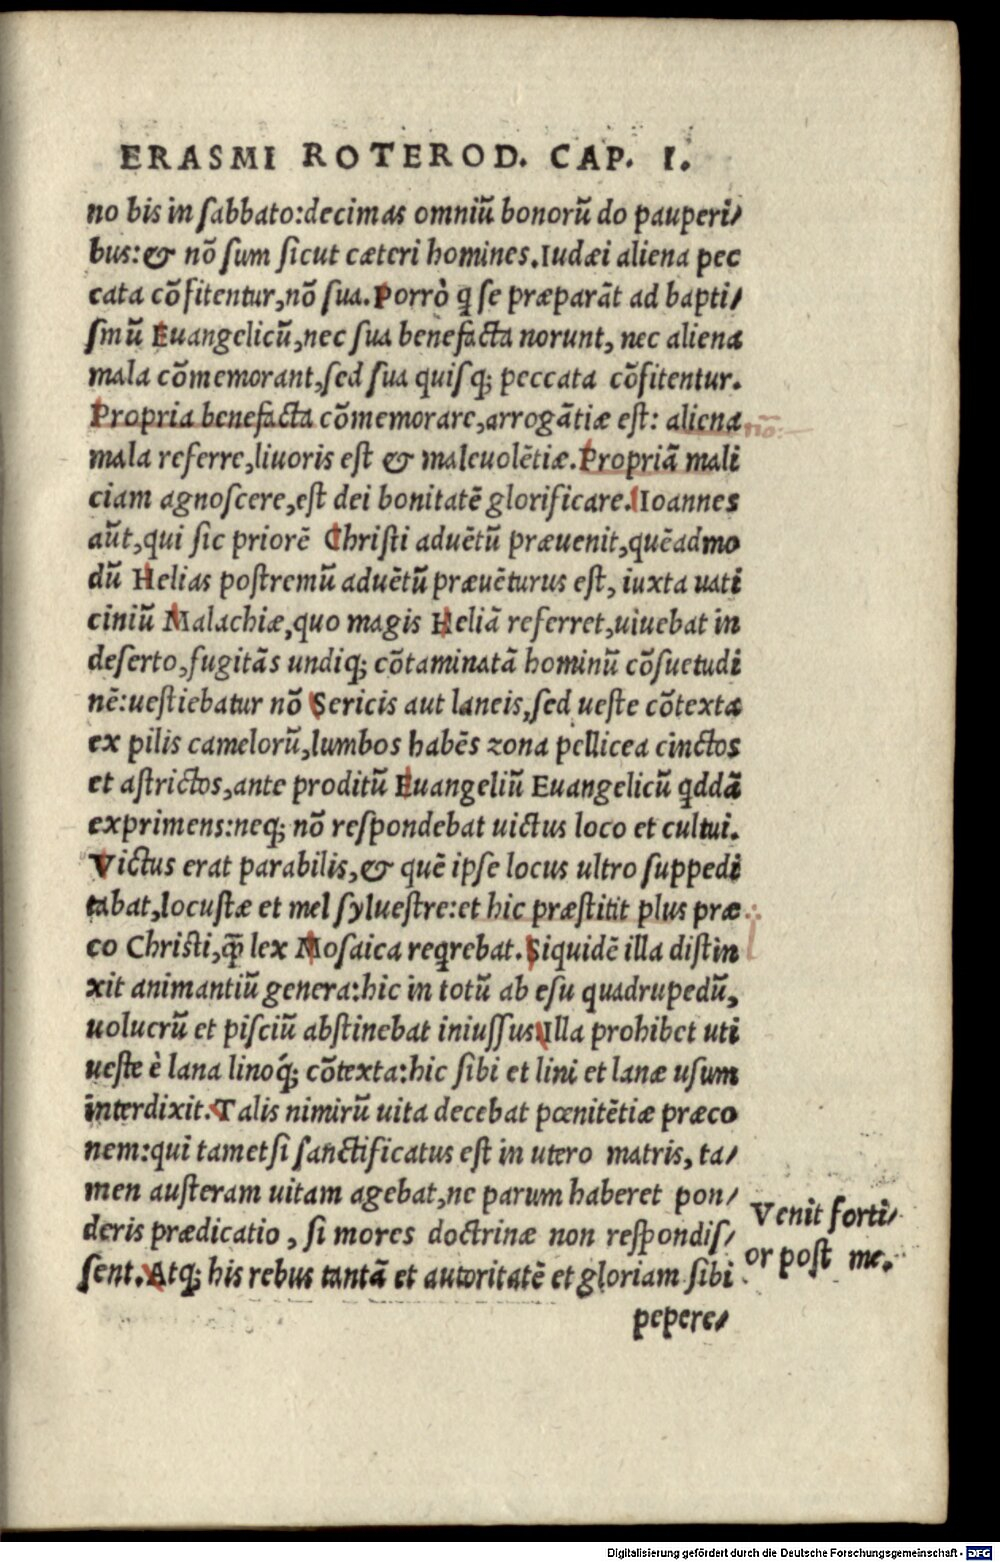 ERASMI ROTEROD. CAP. I.
no bis in ſabbato:decimas omniũ bonorũ do pauperi/
bus:& nõ ſum ſicut cæteri homines.Iudæi aliena pec
cata cõfitentur,nõ ſua.Porrò ꝗ ſe præparãt ad bapti/
ſmũ Euangelicũ,nec ſua benefacta norunt, nec aliena
mala cõmemorant,ſed ſua quiſq; peccata cõfitentur.
Propria benefacta cõmemorare,arrogãtiæ eſt: aliena
mala referre,liuoris eſt & maleuolẽtiæ.Propriã mali
ciam agnoſcere,eſt dei bonitatẽ glorificare.Ioannes
aũt,qui ſic priorẽ Chriſti aduẽtũ præuenit,quẽadmo
dũ Helias poſtremũ aduẽtũ præuẽturus eſt, iuxta uati
ciniũ Malachiæ,quo magis Heliã referret,uiuebat in
deſerto,fugitãs undiq; cõtaminatã hominũ cõſuetudi
nẽ:ueſtiebatur nõ Sericis aut laneis,ſed ueſte cõtexta
ex pilis camelorũ,lumbos habẽs zona pellicea cinctos
et aſtrictos,ante proditũ Euangeliũ Euangelicũ ꝗddã
exprimens:neq; nõ reſpondebat uictus loco et cultui.
Victus erat parabilis,& quẽ ipſe locus ultro ſuppedi
tabat,locuſtæ et mel ſylueſtre:et hic præſtitit plus præ
co Chriſti,ꝗ̃ lex Moſaica reꝗrebat.Siquidẽ illa diſtin
xit animantiũ genera:hic in totũ ab eſu quadrupedũ,
uolucrũ et piſciũ abſtinebat iniuſſus.Illa prohibet uti
ueſte è lana linoq́; cõtexta:hic ſibi et lini et lanæ uſum
interdixit.Talis nimirũ uita decebat pœnitẽtiæ præco
nem:qui tametſi ſanctificatus eſt in utero matris, ta/
men auſteram uitam agebat,ne parum haberet pon/
deris prædicatio, ſi mores doctrinæ non reſpondiſ/
ſent.Atq; his rebus tantã et autoritatẽ et gloriam ſibi
pepere/
Venit forti/
or poſt me.